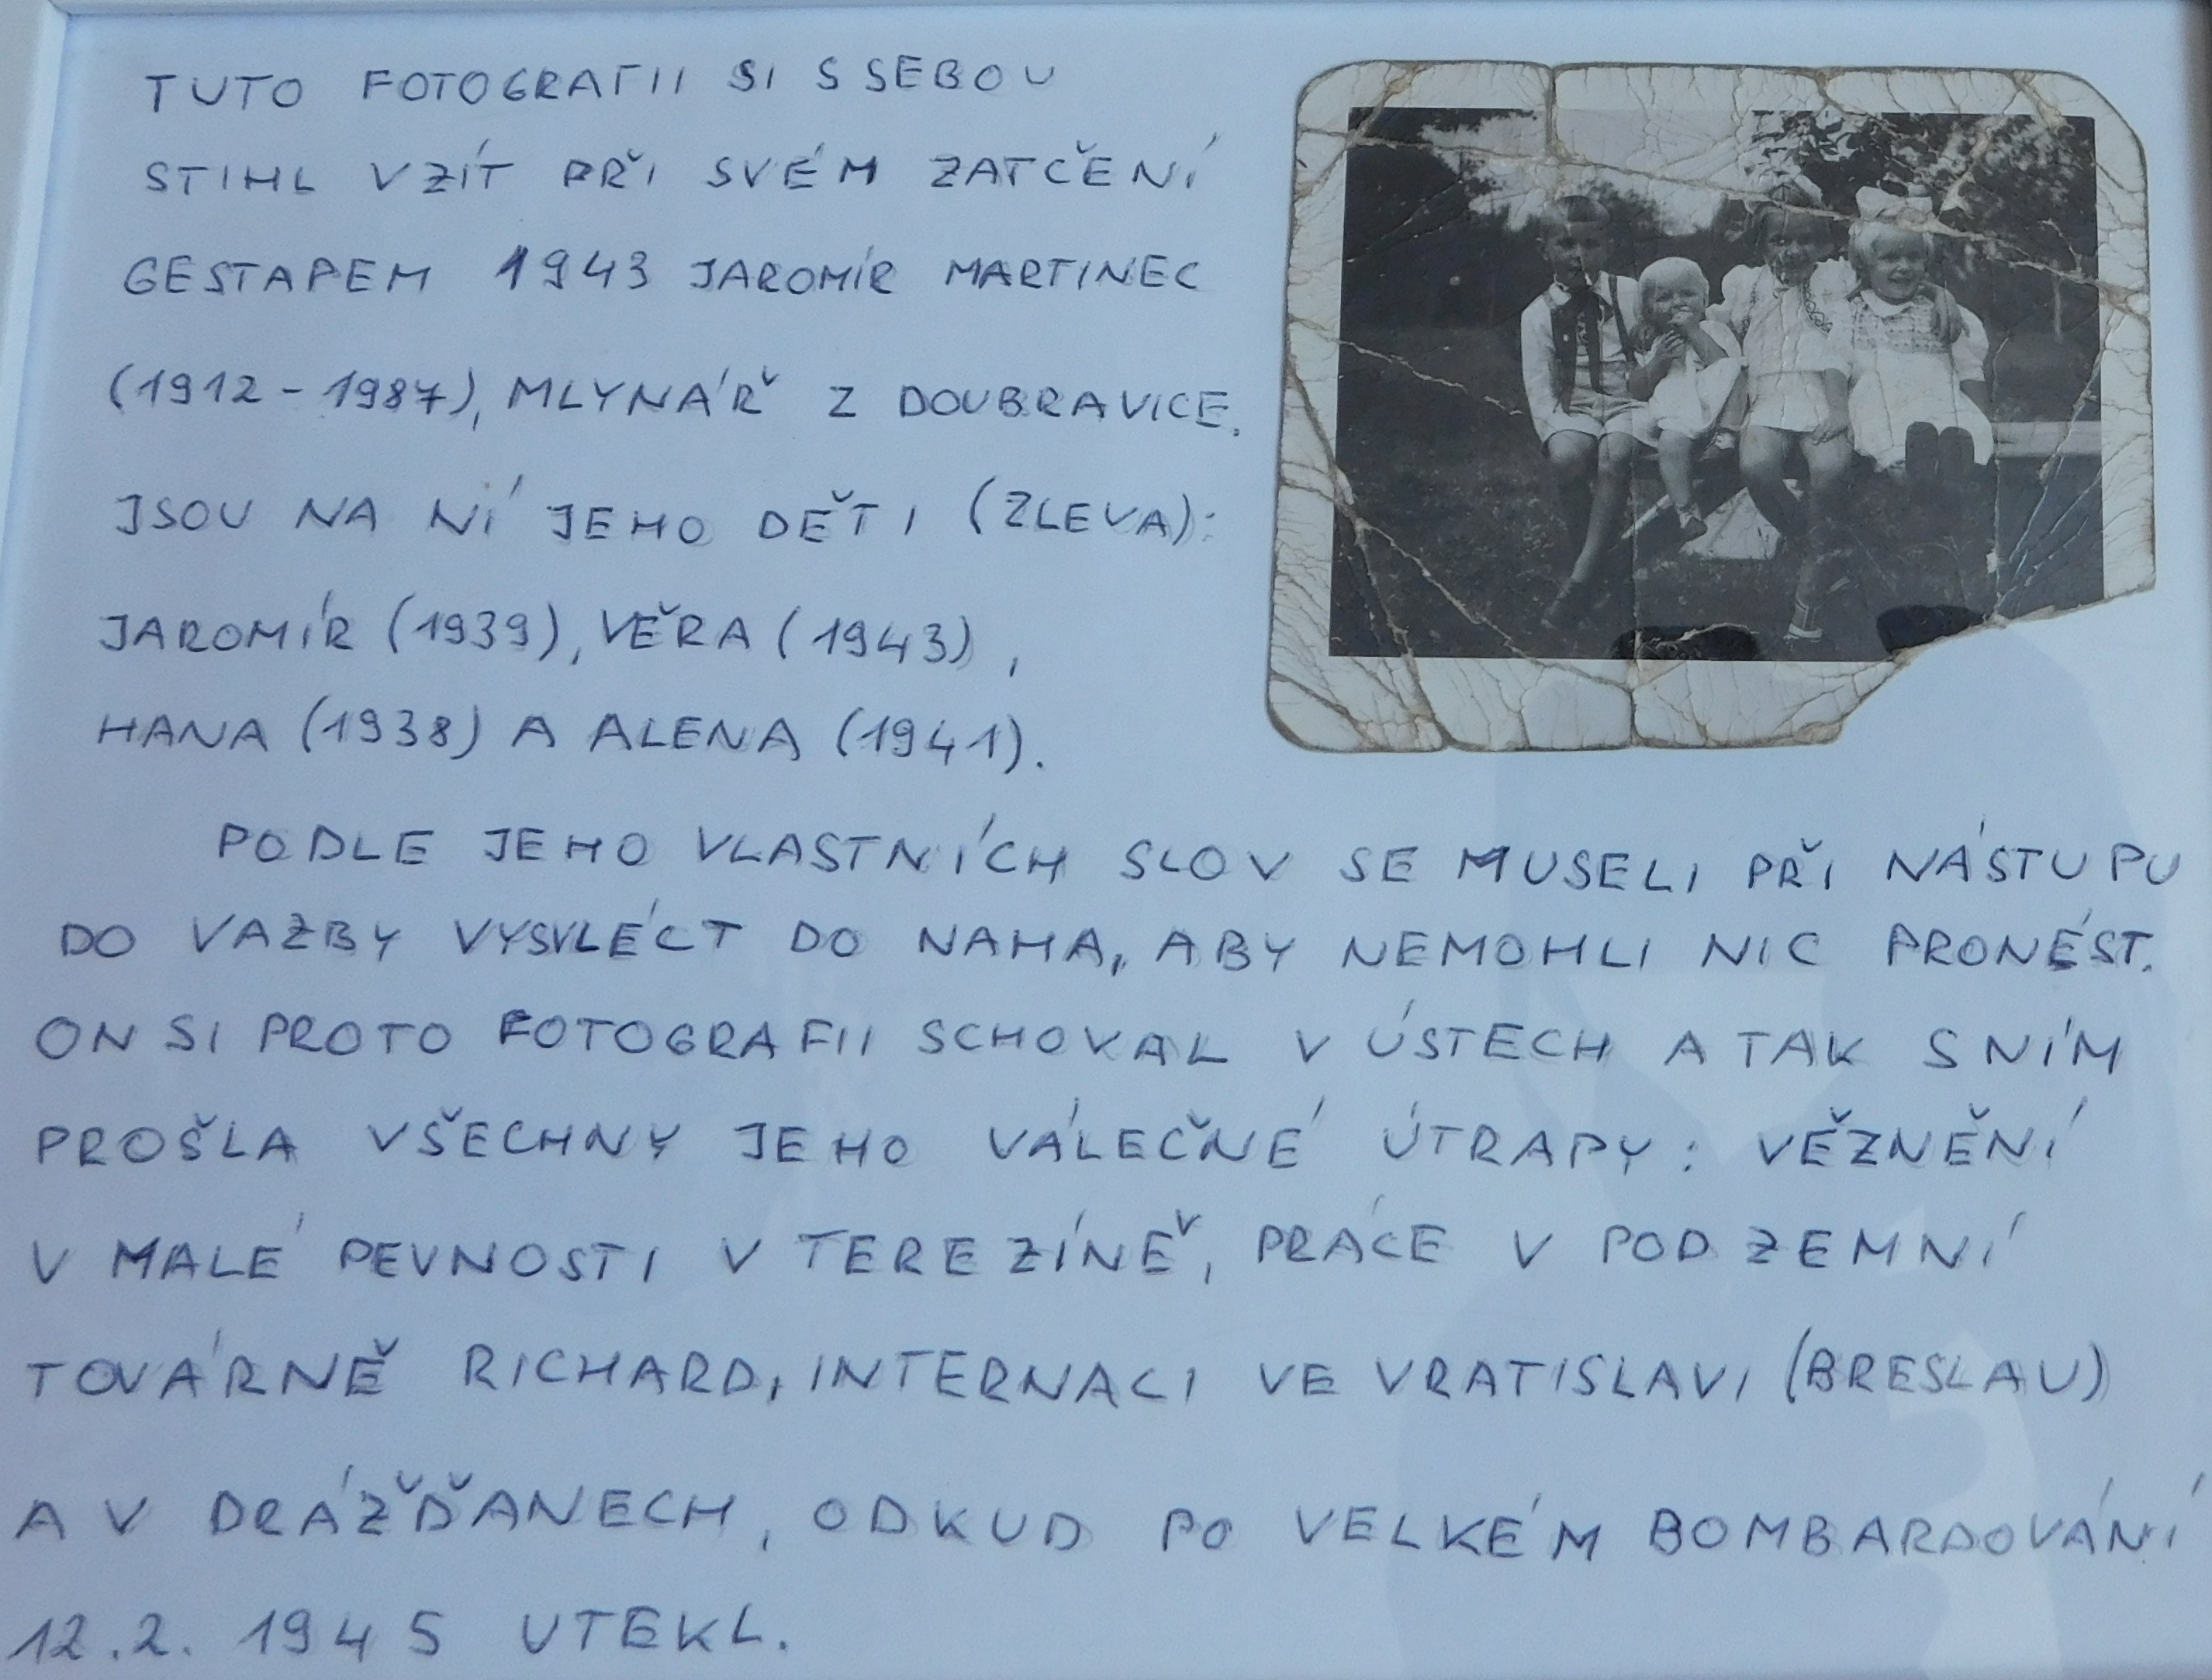 TUTO FOTOGRAFII SI S SEBOU
STIHL VZÍT PŘI SVÉM ZATČENÍ
GESTAPEM 1943 JAROMÍR MARTINEC
(1912 - 1987), MLYNÁŘ Z DOUBRAVICE.
JSOU NA NÍ JEHO DĚTI (ZLEVA):
JAROMÍR (1939), VĚRA (1943),
HANA (1938) A ALENA (1941).
PODLE JEHO VLASTNÍCH SLOV SE MUSELI PŘI NÁSTUPU
DO VAZBY VYSVLÉCT DO NAHA, ABY NEMOHLI NIC PRONÉST.
ON SI PROTO FOTOGRAFII SCHOVAL V ÚSTECH A TAK S NÍM
PROŠLA VŠECHNY JEHO VÁLEČNÉ ÚTRAPY: VĚZNĚNÍ
V MALÉ PEVNOSTI V TEREZÍNĚ, PRÁCE V PODZEMNÍ
TOVÁRNĚ RICHARD, INTERNACI VE VRATISLAVI (BRESLAU)
A V DRÁŽĎANECH, ODKUD PO VELKÉM BOMBARDOVÁNÍ
12.2. 1945 UTEKL.